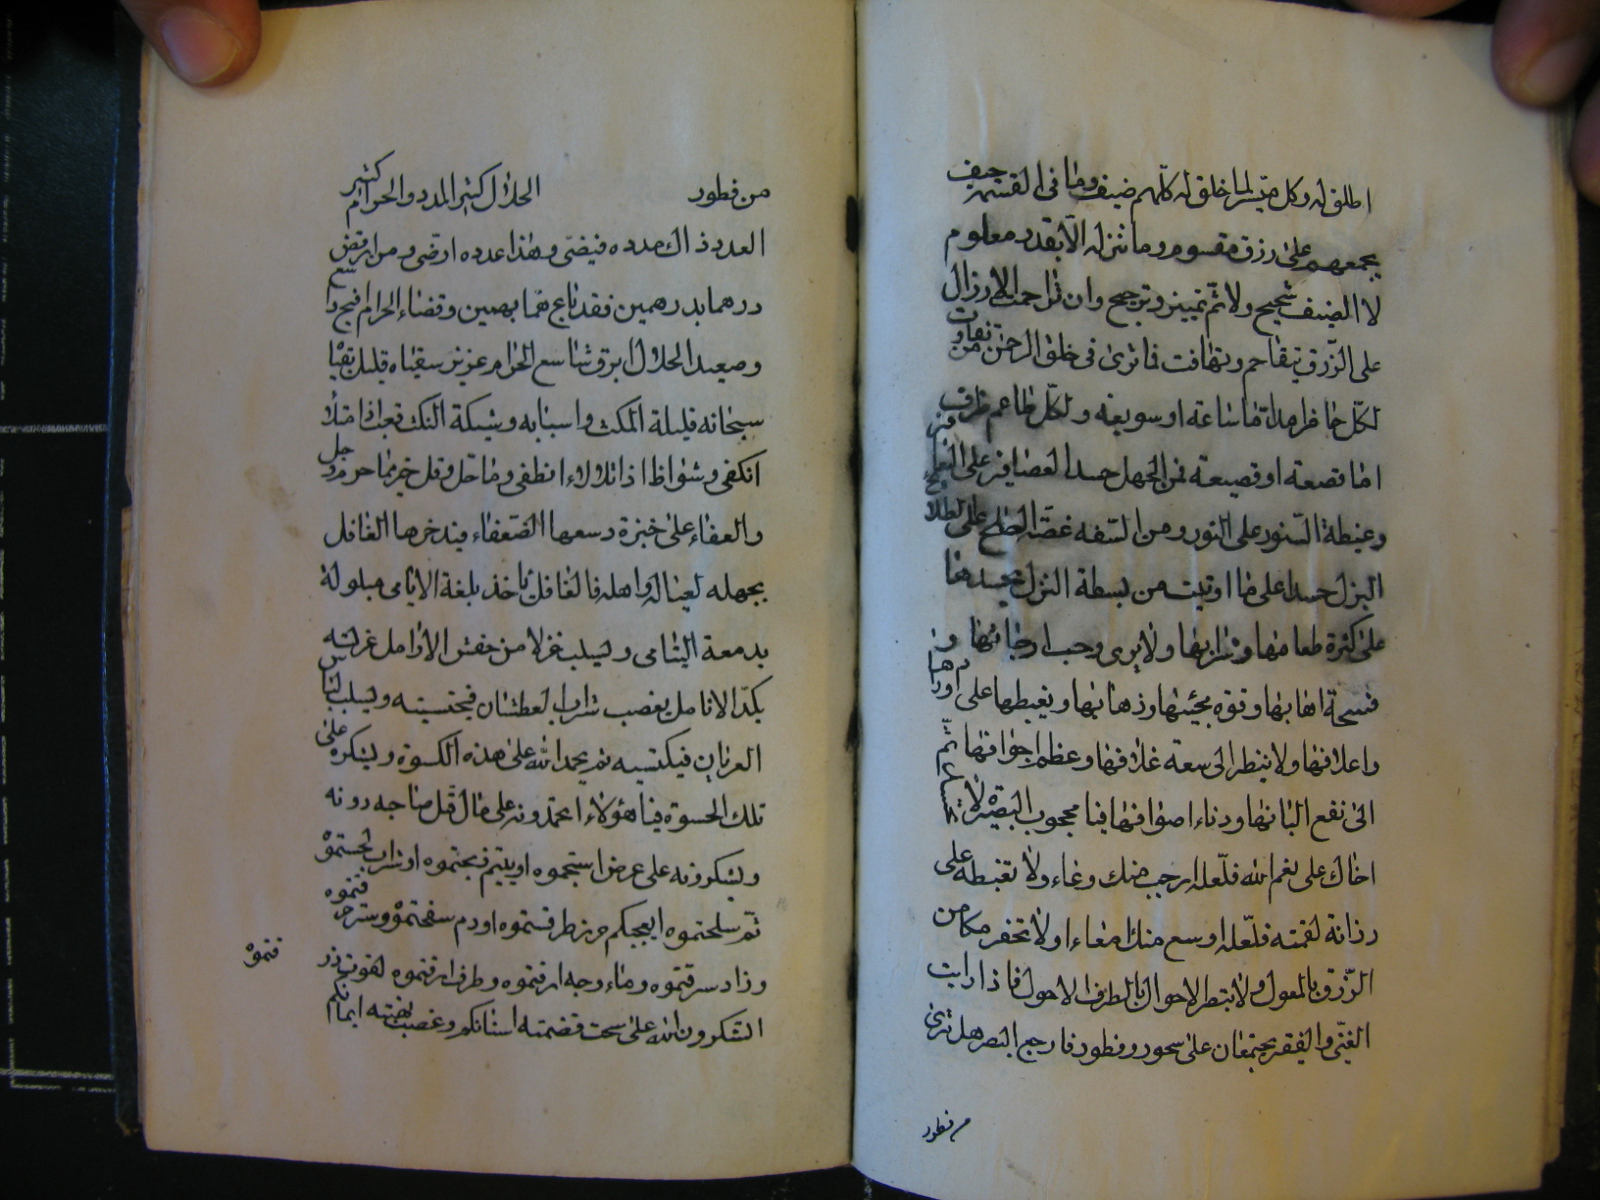 اطلق له وكل ميسر لما خلق له كلهم ضيف وما في القسمة حيف
يجمعهم على رزق مقسوم وما ننزله الا بقدر معلوم
لا الضيف شحيح ولا ثم تمييز وترجيح وان تزاحمت الارزال
على الرزق بتقاحم وتهافت فما ترى في خلق الرحمن من تفاوت
لكل حافر مدامة ساعة او سويعة ولكل طاعم ظرف
اما قصعة او قصيعة فمن الجهل حسد العصافير على
وغبطة السنور على النور ومن السفه غصة الطلح على
البزل حسدا على ما اوتيت من بسطة النزل تحسدها
على كثرة طعامها وشرابها ولا يرى رحب ارجائها و
فسحة اهابها وقوة مجيئها وذهابها ويغبطها على اورادها
واعلافها ولا ينظر الى سعة غلافها وعظم اجوافها ثم
الى نفع البانها ودناء اصوافها فيا محجوب البصيرة لا
اخاك على نعم الله فلعله ارحب منك وعاء ولا تغبطه على
رذانة لقمته فلعله اوسع منك امعاء او لا تحفر مكامن
الرزق بالمعول ولا ينتظر الاحوال بالطرف الاحول فاذا رايت
الغني والفقير يجتمعان على سحور وفطور فارجع البصر هل ترى
من فطور
من فطور الحلال كثير المدد والحرام كثير
العدد ذاك مدده فيضي وهذا عدده ارضي ومن ارتضى
درهما بدرهمين فقد باع هما بهمين وقضاء الحرام فج واسع
وصعيد الحلال ابرق شاسع الحرام عزيز سقياه قليل بقيا
سحابه قليلة المكث واسبابه وشيكة النكث قعبا اذا ملأ
انكفى وشواظ اذا تلألاء انطفى وما حل وقل خير مما حرم وجل
والعفاء على خبزة دسعها الضعفاء فيدخرها الغافل
بجهله لعياله واهله فالغافل ياخذ بلغة الايامى مبلولة
بدمعة اليتامى ويسلب غزلا من حفش الارامل غزلته
بكد الانامل يغصب شراب العطشان فيحتسيه ويسلب لباس
العريان فيكتسيه ثم يحمد الله على هذه الكسوة ويشكره على
تلك الحسوة فيا هؤلاء اعتمدونه على مال قل صاحبه دونه
وتشكرونه على عرض استبحتموه او يتيم ذبحتموه او شراب لحستموه
ثم سلحتموه ايعجبكم حرز طرفستموه او دم سفحتموه وستر
وزاد سرقتموه وماء وجه ارقتموه وطرف ارقتموه
الشكرون الله على سحت قضمته اسنانكم وغصب هضمته ايمانكم